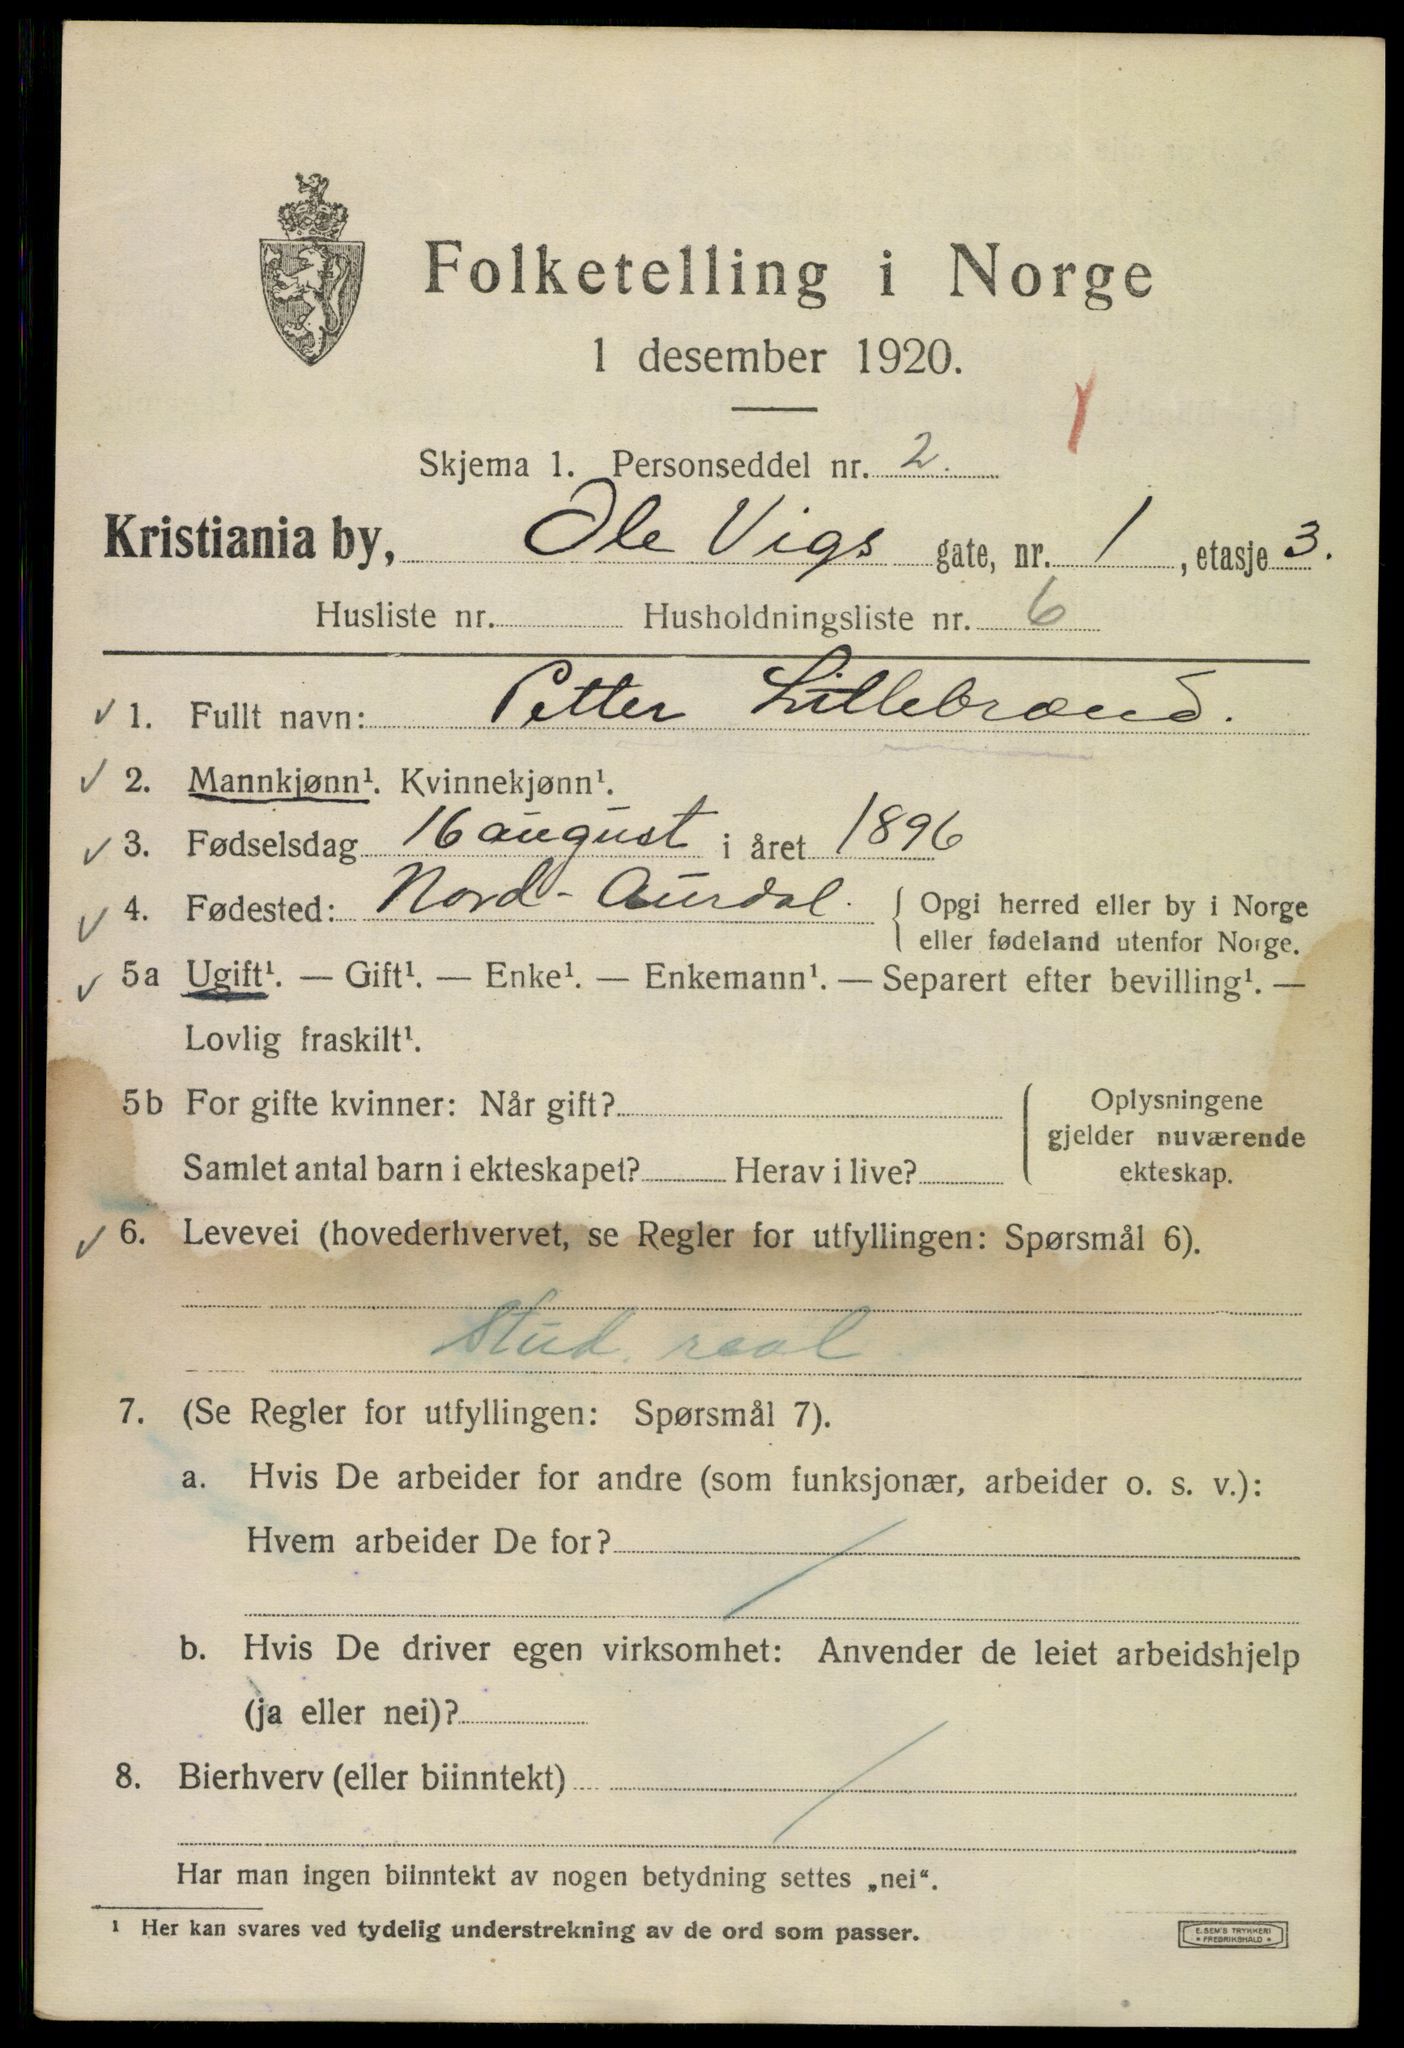 Folketelling i Norge
1 desember 1920.
Skjema 1. Personseddel nr. 2.
Kristiania by, Ole Vigs gate, nr. 1, etasje 3.
Husliste nr. Husholdningsliste nr. 6
1. Fullt navn: Petter Lillebrænd.
2. Mannkjønn¹. Kvinnekjønn¹.
3. Fødselsdag 16 august i året 1896
4. Fødested: Nord-Aurdal. { Opgi herred eller by i Norge
eller fødeland utenfor Norge.
5a Ugift¹. — Gift¹. — Enke¹. — Enkemann¹. — Separert efter bevilling¹. —
Lovlig fraskilt¹.
5b For gifte kvinner: Når gift? { Oplysningene
gjelder nuværende
Samlet antal barn i ekteskapet? Herav i live? ekteskap.
6. Levevei (hovederhvervet, se Regler for utfyllingen: Spørsmål 6).
Stud. real.
7. (Se Regler for utfyllingen: Spørsmål 7).
a. Hvis De arbeider for andre (som funksjonær, arbeider o. s. v.):
Hvem arbeider De for? /
b. Hvis De driver egen virksomhet: Anvender de leiet arbeidshjelp
(ja eller nei)?
8. Bierhverv (eller biinntekt) /
Har man ingen biinntekt av nogen betydning settes „nei“.
¹ Her kan svares ved tydelig understrekning av de ord som passer.
E. SEM'S TRYKKERI
* FREDRIKSHALD *